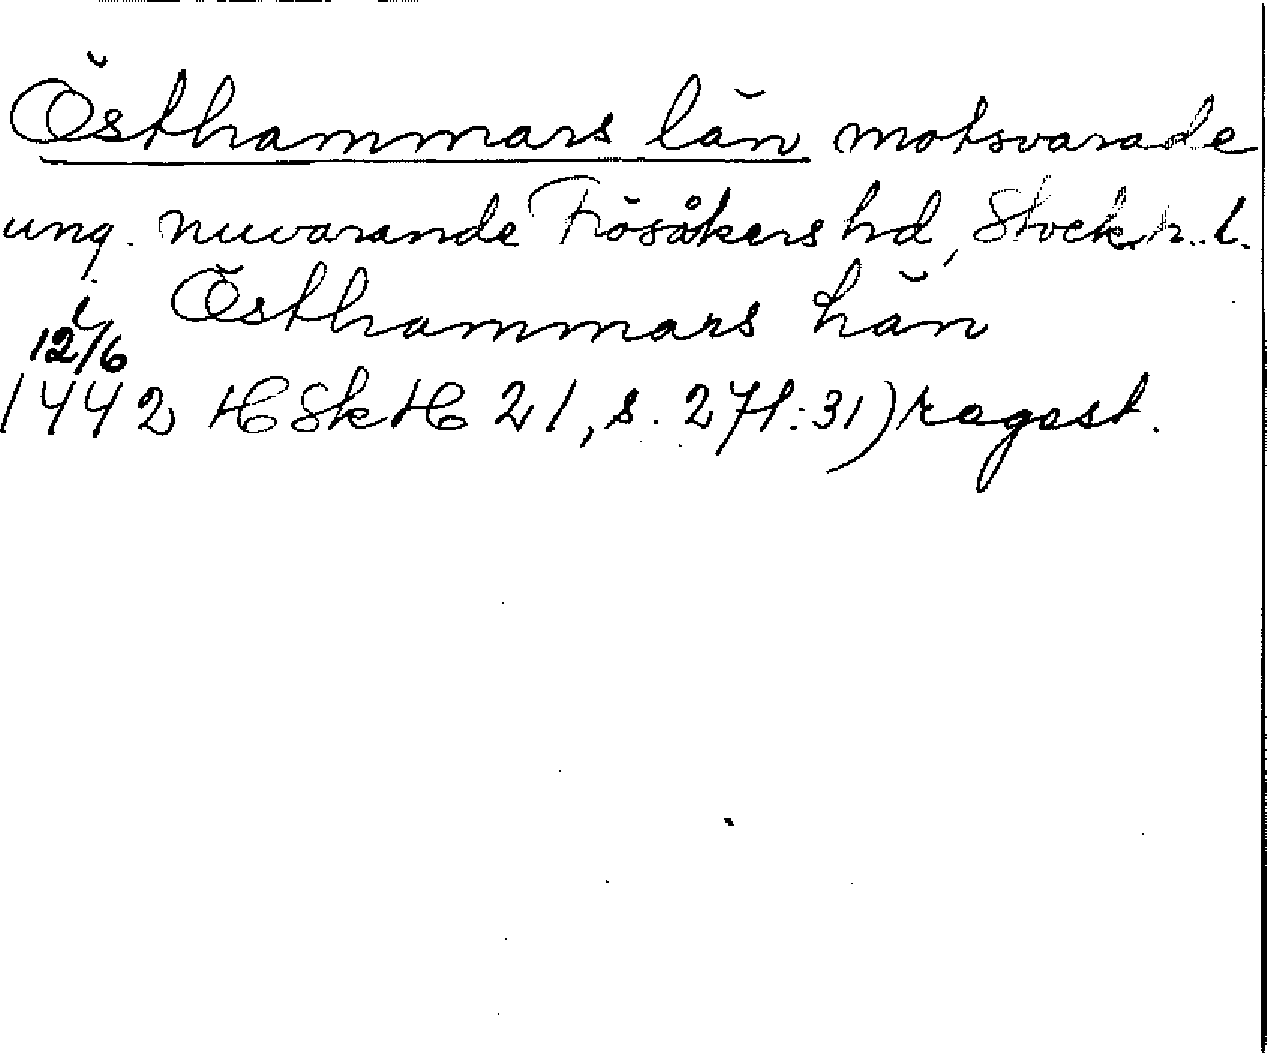 Östhammars län motsvarade
ung. nuvarande Frösåkers hd, Stockh. l.
i Östhammars hän
12/6
1442 HSkH 21, s. 271:31) regest.